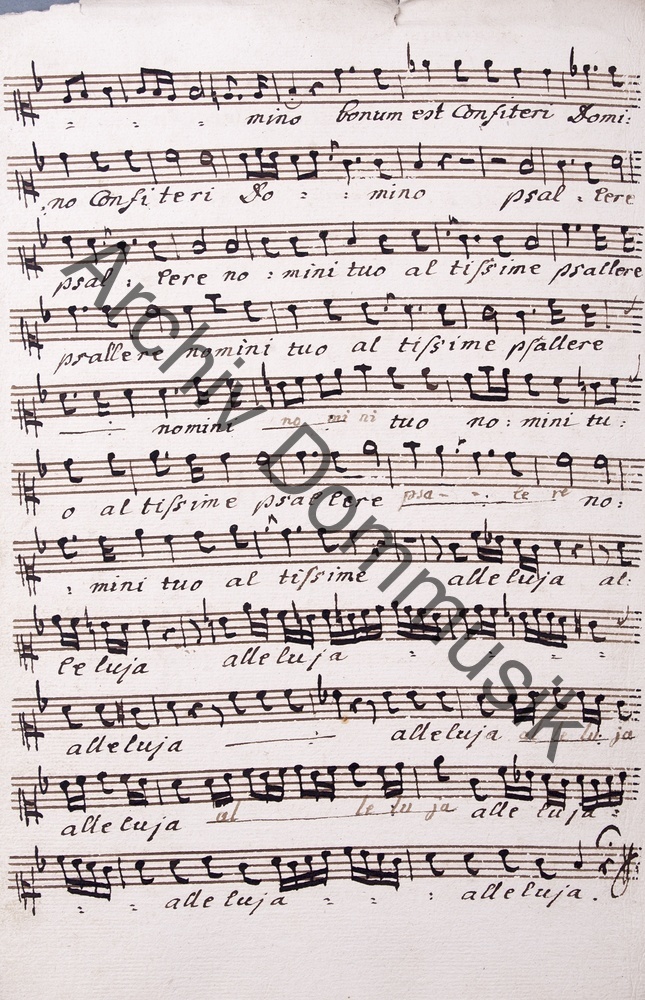 mino bonum est Confiteri Domi:
no Confiteri Do : : mino psal : lere
psal : lere no : mini tuo al tissime psallere
psallere nomini tuo al tissime psallere
nomini no mi ni tuo no: mini tu:
o al tissime psallere psa - - le re no:
: mini tuo al tissime alleluja al:
leluja alleluja
alleluja alleluja al le lu ja
alleluja al le lu ja alleluja
alleluja alleluja.
Archiv Dommusik